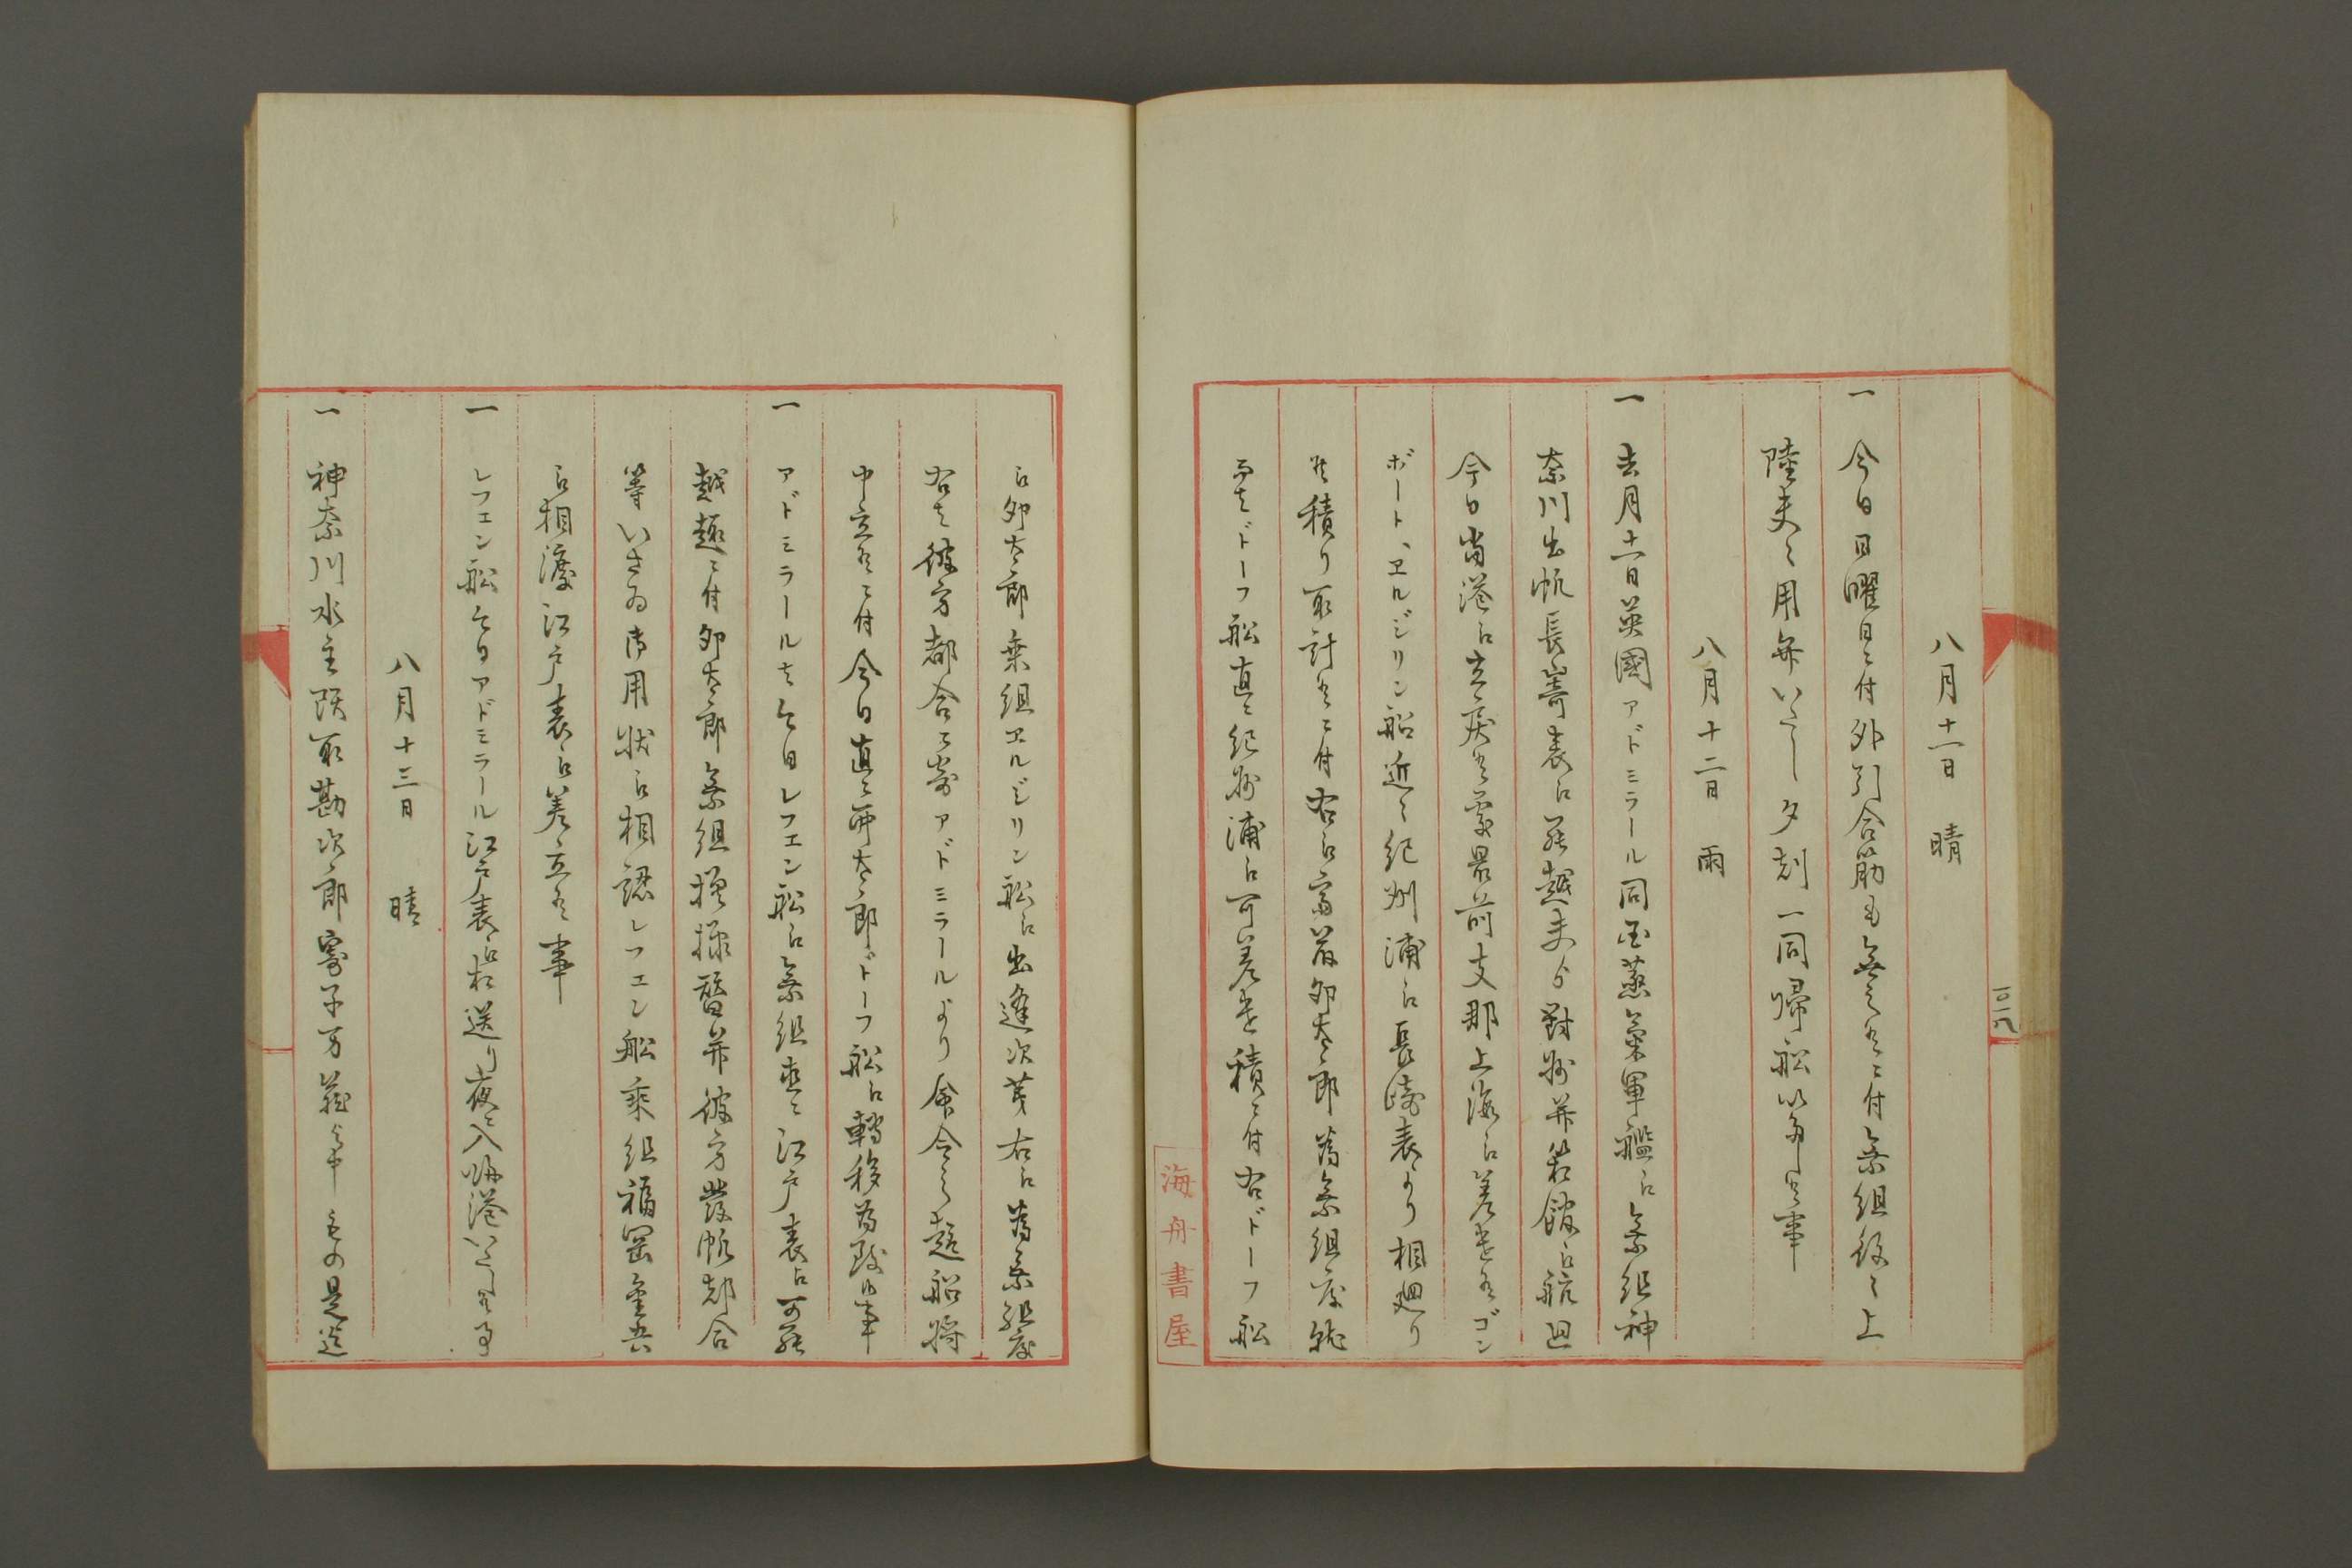 八月十一日 晴
一 今日日曜日ニ付外引合筋も無之候ニ付乗組役々上
陸夫々用弁いたし夕刻一同帰船いたし候事
八月十二日 雨
一 去月十一日英國アドミラール同国蒸氣軍艦ニ乗組神
奈川出帆長嵜表江罷越夫ゟ對州并箱館江航廻
今日當港江立戻候處最前支那上海江差遣候ゴン
ボート、ヱルジリン船近々紀州浦江長崎表より相廻り
候積り取計候ニ付右江富眷卯太郎為乗組度就
而者ドーフ船直ニ紀州浦江可差遣積ニ付右ドーフ船
江卯太郎乗組ヱルジリン船江出逢次第右江為乗組度
右者彼方都合ニ寄アドミラールより命令之趣船將
申立候ニ付今日直ニ卯太郎ドーフ船江轉移為致候事
一 アドミラール者今日レフエン船江乗組直ニ江戸表江可罷
越趣ニ付卯太郎乗組換操替并彼方發帆都合
等いさゐ御用状江相認レフエン船乗組福岡金吾
江相渡江戸表江差立候事
一 レフエン船今日アドミラール江戸表江相送り夜ニ入帰港いたし候事
八月十三日 晴
一 神奈川水主頭取勘次郎寄子万藏与申もの是迄
海舟書屋